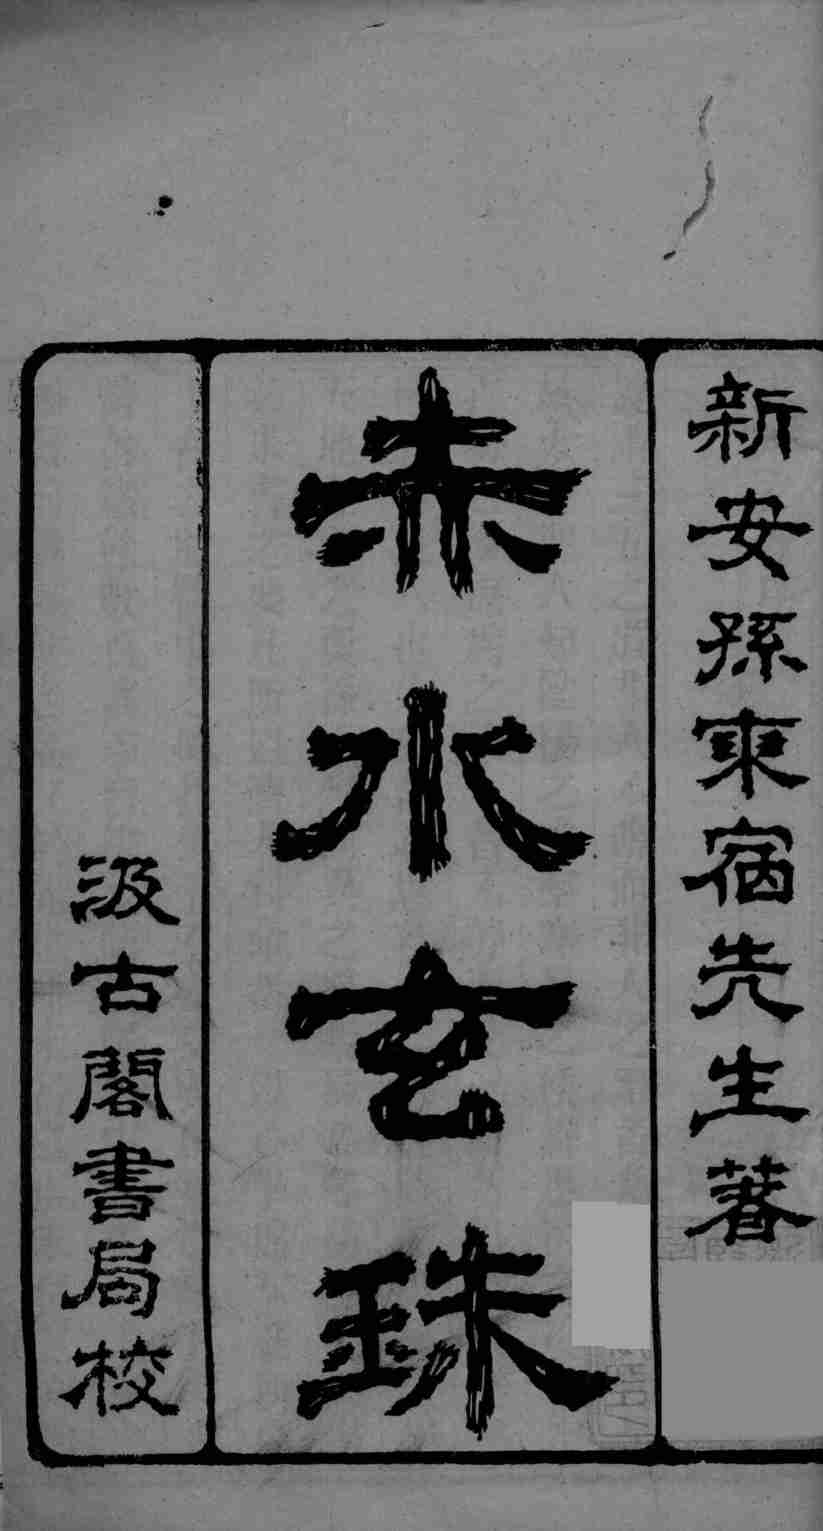 新安孫東宿先生著
赤水玄珠
汲古閣書局校